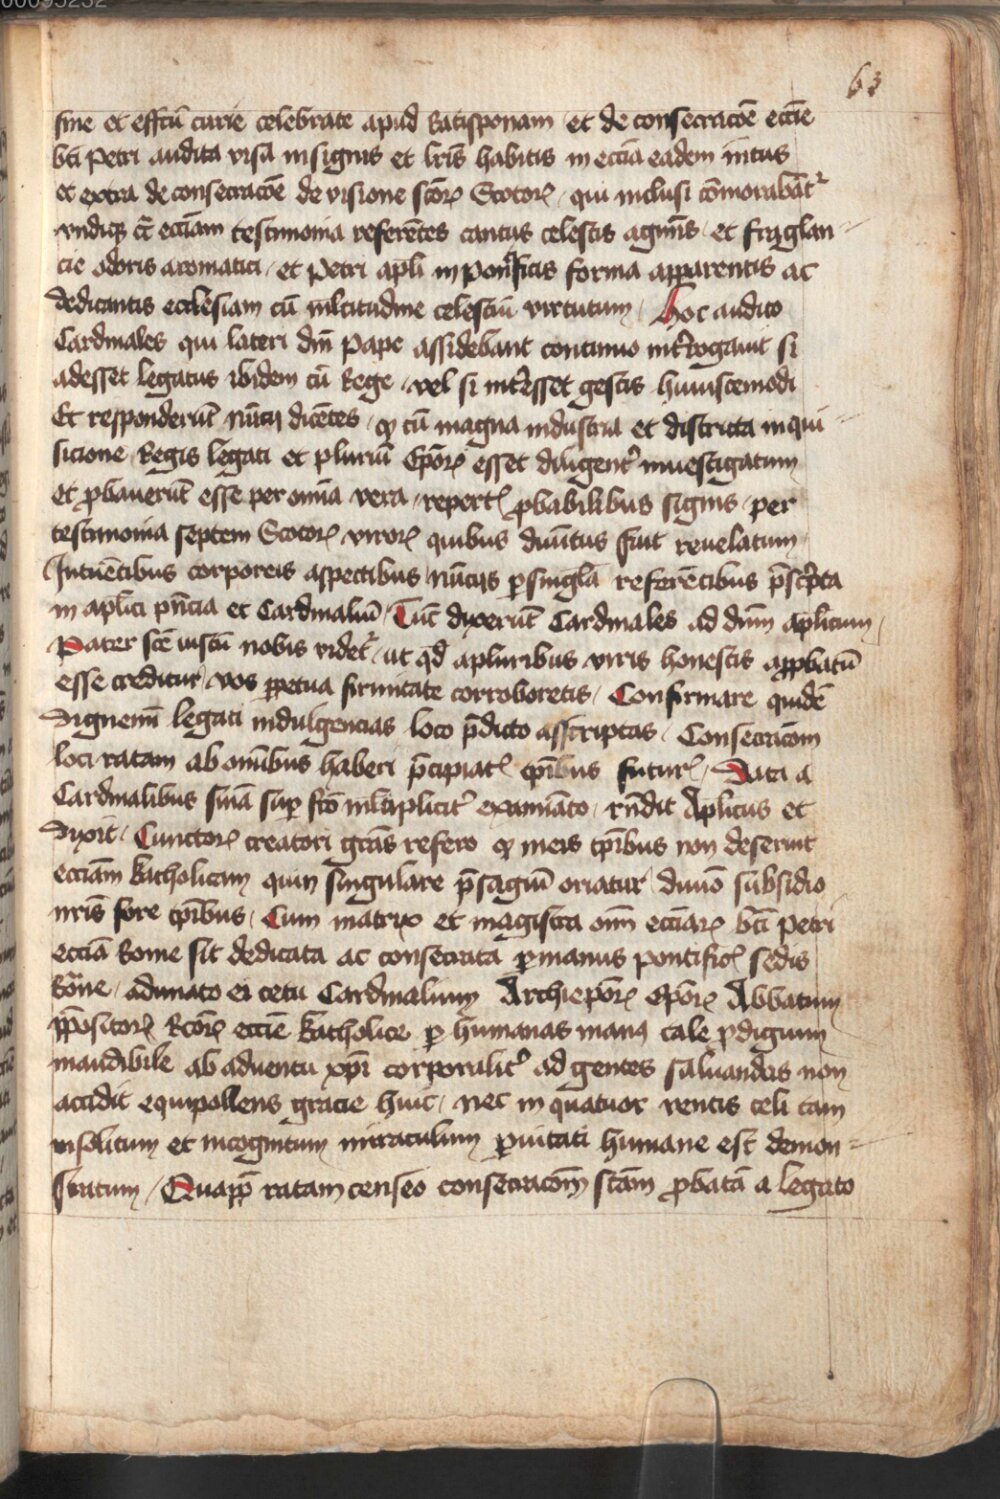 00095252
63
fine et effctũ curie celebrate apud Ratisponam et de consecracõe eccĩe
bti Petri audita visa insignis et lrĩs habitis in eccĩa eadem intus
et extra de consecracõe de visione scõrꝫ Scotorꝫ qui inclusi cõmorabãtr
vndiqꝫ c̃ eccĩam testimonia referẽtes cantus celestis agmĩs et fraglan
cie odoris aromatici et Petri apli in ponťficis forma apparentis ac
dedicantis ecclesiam cũ mltitudine celestiũ virtutum Hoc audito
Cardinales qui lateri dnĩ Pape assidebant continuo introgauit si
adesset legatus ibidem cũ Rege vel si intresset gestis huiuscemodi
Et responderũt nũcij dicẽtes qꝫ cũ magna industria et districta inqui
sicione Regis legati et pluriũ Epõrꝫ esset diligentr inuestigatum
et ꝓbauerũt esse per omĩa vera repertꝭ ꝓbabilibus signis per
testimonia septem Scotorꝫ virorꝫ quibus diuĩtus fuit reuelatum
Intuẽtibus corporeis aspectibus nũcijs ꝑ singla referẽtibus p̃scripta
in aplici pñcia et Cardinaliũ Tũc dixerũt Cardinales ad dnm̃ aplicum
Pater sce iustũ nobis videtr ut qd̃ a pluribus viris honestis approbatũ
esse creditur vos ꝑpetua firmitate corroboretis Confirmare quidẽ
Dignemĩ legati indulgencias loco p̃dicto asscriptas Consecracõm
loci ratam ab omĩbus haberi p̃cipiatꝭ tp̃ibus futurꝭ Data a
Cardinalibus snĩa sup fcõ mltiplicitr examĩato rñdit Aplicus et
Dixit Cunctorꝫ creatori grãs refero qꝫ meis tp̃ibus non deseruit
eccĩam katholicam quin singulare p̃sagiũ oriatur diuio subsidio
nrĩs fore tp̃ibus Cum matrix et magistra om̃ eccĩarꝫ bti Petri
eccĩa Rome sit dedicata ac consecrata ꝑ manus pontificꝭ sedis
Rõne adunato ei cetu Cardinalium Archiepõrꝫ Epõrꝫ Abbatum
ꝓpositorꝫ Rcõrꝫ eccĩe katholice ꝑ humanas manꝰ tale ꝓdigium
inaudibile ab aduentu xp̃i corporalitr ad gentes saluandas non
accidit equipollens gracie huic nec in quatuor ventis celi tam
insolitum et incognitum miraculum ꝑuitati humane est demon
stratum Quapp̃ ratam censeo consecracõm scãm ꝓbatã a legato